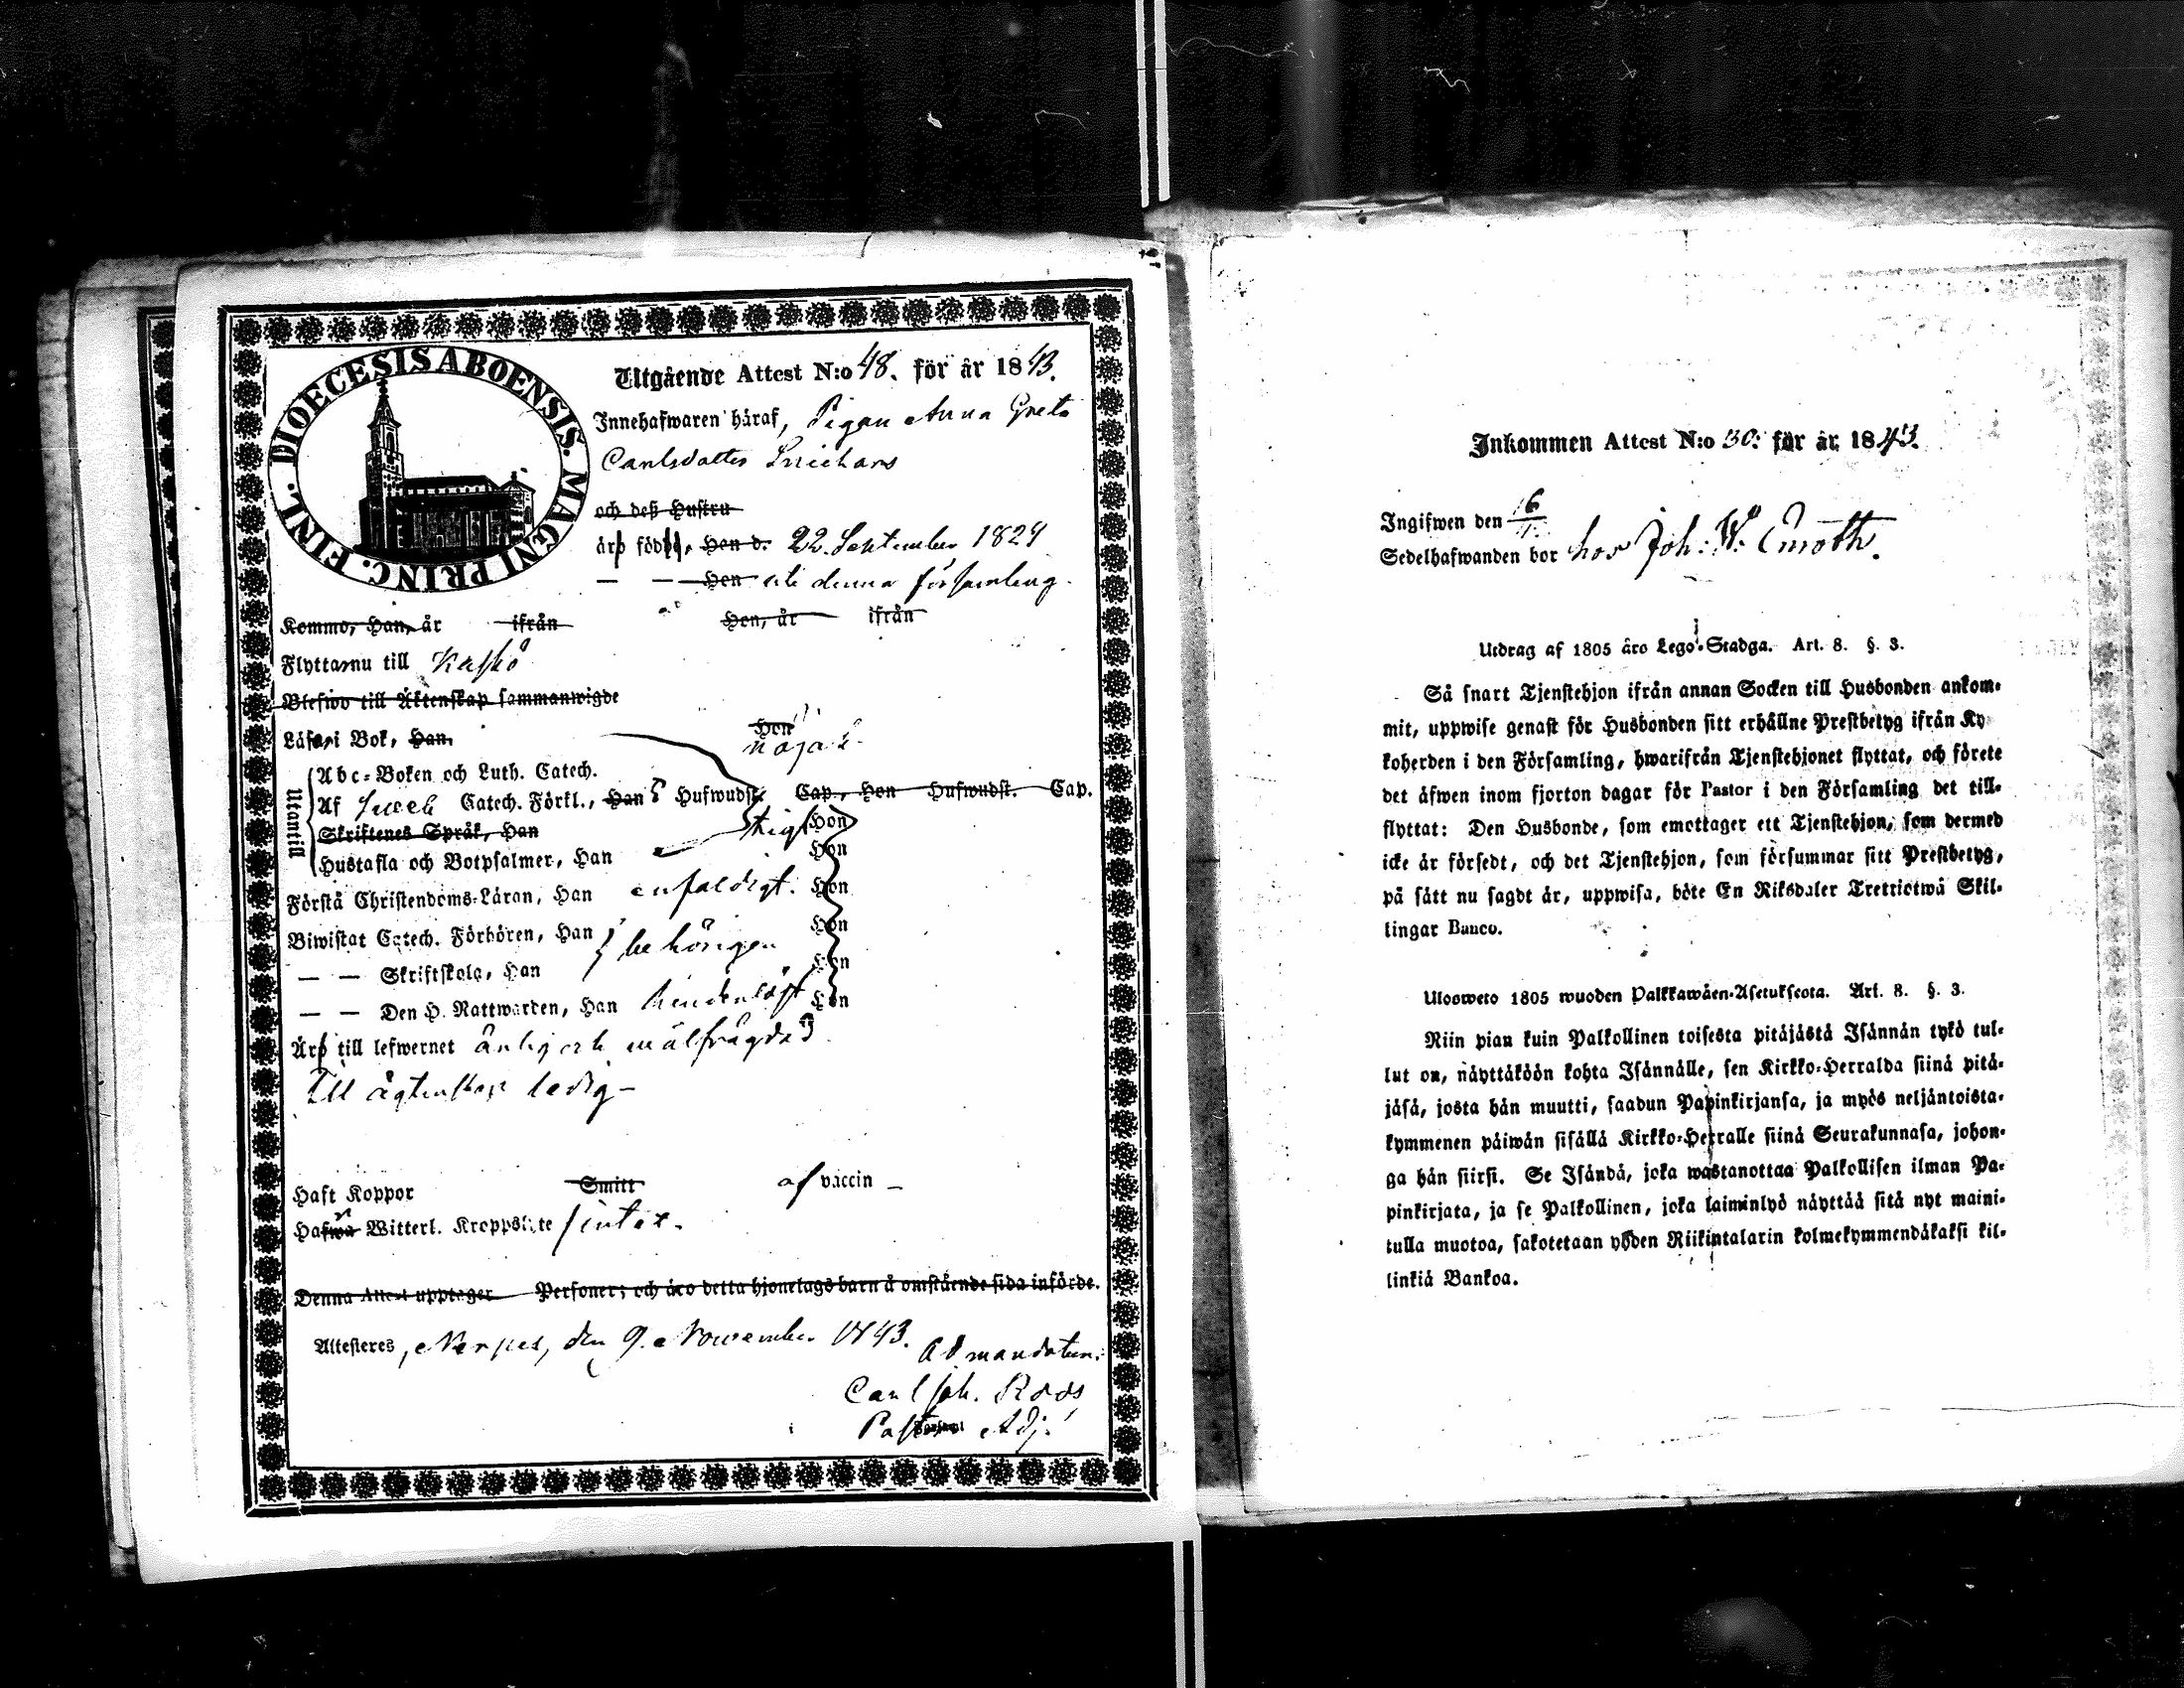 DIOECESIS ABOENSIS. MAGNI PRINC. FINL.
Utgående Attest N:o 48. för år 1843.
Innehafwaren häraf, Pigan Anna Greta
Carlsdotter
och deß Hustru
äro födde, Hon d. 22. September 1824
— — Hon uti denna församling.
Kommo, Han, år ifrån Hon, år ifrån
Flyttar nu till Kaskö
Blefwo till Äktenskap sammanwigde
Läser i Bok, Han, Hon
nöjakt.
Utantill
Abc-Boken och Luth. Catech.
Af Catech. Förkl., Han 5 Hufwudst. Cap., Hon Hufwudst. Cap.
Skriftenes Språk, Han Hon
Hustafla och Botpsalmer, Han Hon
Förstå Christendoms-Läran, Han enfaldigt. Hon
Biwistat Catech. Förhören, Han behörigen Hon
— — Skriftskola, Han Hon
— — Den H. Nattwarden, Han hinderslöst Hon
Äro till lefwernet ärlig och wälfrägdad
Till ägtenskap ledig —
Haft Koppor Smitt af vaccin —
Hafwa Witterl. Kroppslyte intet.
Denna Attest upptager Personer; och äro detta hjonelags barn å omstående sida införde.
Attesteres, Nerpes, den 9. November 1843.
Ad mandatum:
Carl Joh. Roos
Pastors Adj.
Inkommen Attest N:o 30: för år 1843.
Ingifwen den 16/11.
Sedelhafwanden bor hos Joh: W:
Utdrag af 1805 års Lego-Stadga. Art. 8. §. 3.
Så snart Tjenstehjon ifrån annan Socken till Husbonden ankom-
mit, uppwise genast för Husbonden sitt erhållne Prestbetyg ifrån Ky-
koherden i den Församling, hwarifrån Tjenstehjonet flyttat, och förete
det äfwen inom fjorton dagar för Pastor i den Församling det till-
flyttat: Den Husbonde, som emottager ett Tjenstehjon, som dermed
icke är försedt, och det Tjenstehjon, som försummar sitt Prestbetyg,
på sätt nu sagdt är, uppwisa, böte En Riksdaler Trettiotwå Skil-
lingar Banco.
Ulosweto 1805 wuoden Palkkawäen-Asetuksesta. Art. 8. §. 3.
Niin pian kuin Palkollinen toisesta pitäjästä Isännän tykö tul-
lut on, näyttäköön kohta Isännälle, sen Kirkko-Herralda siinä pitä-
jäsä, josta hän muutti, saadun Papinkirjansa, ja myös neljäntoista-
kymmenen päiwän sisällä Kirkko-Herralle siinä Seurakunnasa, johon-
ga hän siirsi. Se Isändä, joka wastanottaa Palkollisen ilman Pa-
pinkirjata, ja se Palkollinen, joka laiminlyö näyttää sitä nyt maini-
tulla muotoa, sakotetaan yhden Riikintalarin kolmekymmendäkaksi kil-
linkiä Bankoa.